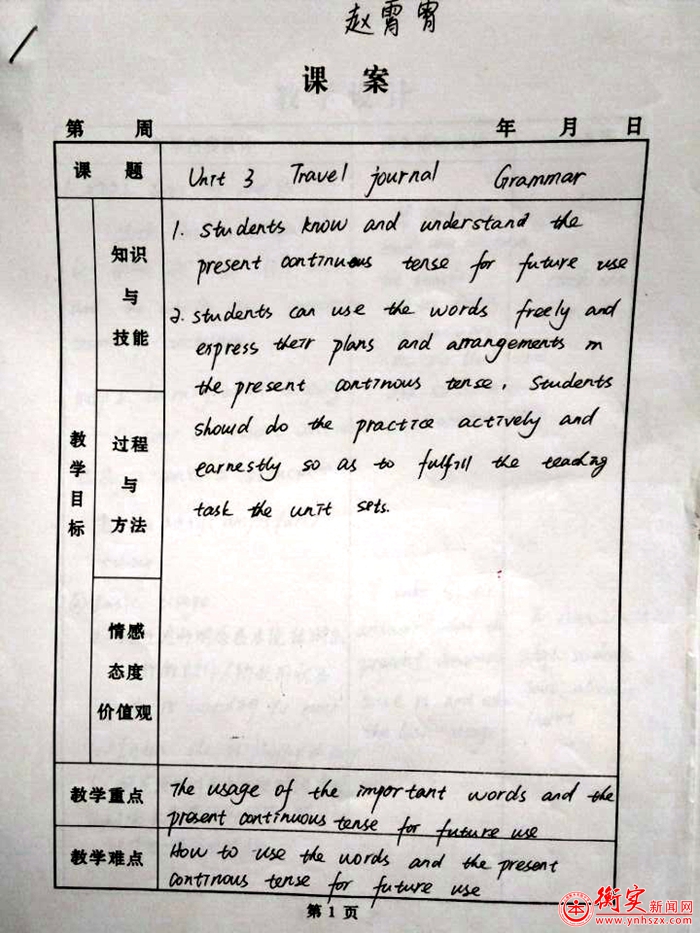 赵霄霄
课 案
第 周 年 月 日
课 题
Unit 3 Travel journal Grammar
教学目标
知识
与
技能
1. Students know and understand the
present continuous tense for future use
2. Students can use the words freely and
express their plans and arrangements in
the present continous tense, Students
should do the practice actively and
earnestly so as to fulfill the teaching
task the unit sets.
过程
与
方法
情感
态度
价值观
教学重点
The usage of the important words and the
present continuous tense for future use
教学难点
How to use the words and the present
continous tense for future use
第 1 页
衡实新闻网
www.ynhszx.com